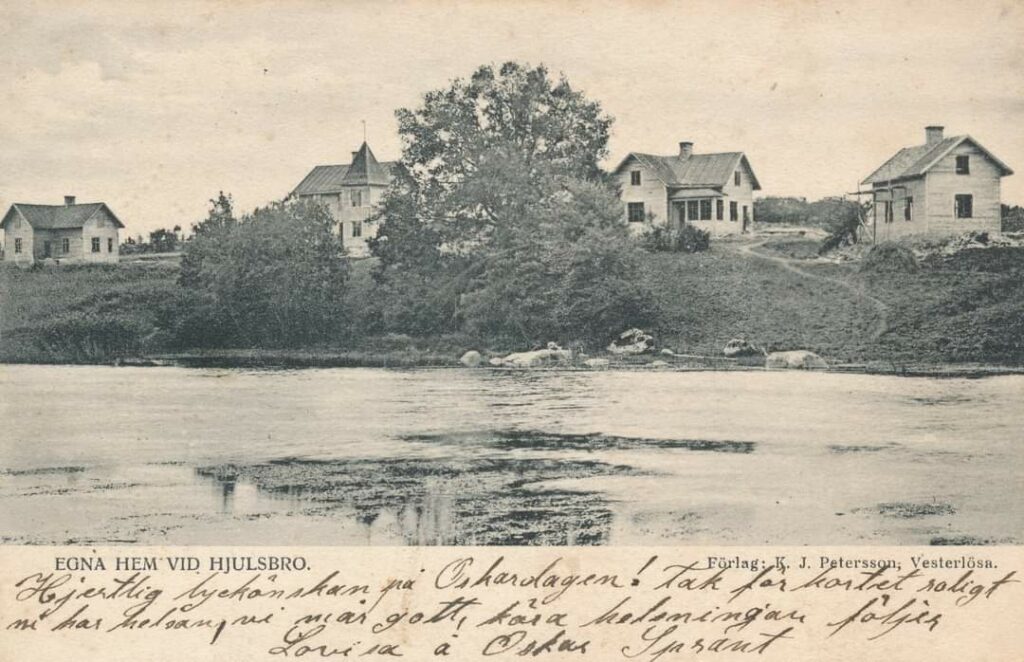 EGNA HEM VID HJULSBRO.
Förlag: K. J. Petersson, Vesterlösa.
Hjertlig lyckönskan på Oskardagen! tak för kortet roligt
ni har helsan, vi mår gott, kära helsningar följer
Lovisa å Oskar Spränt